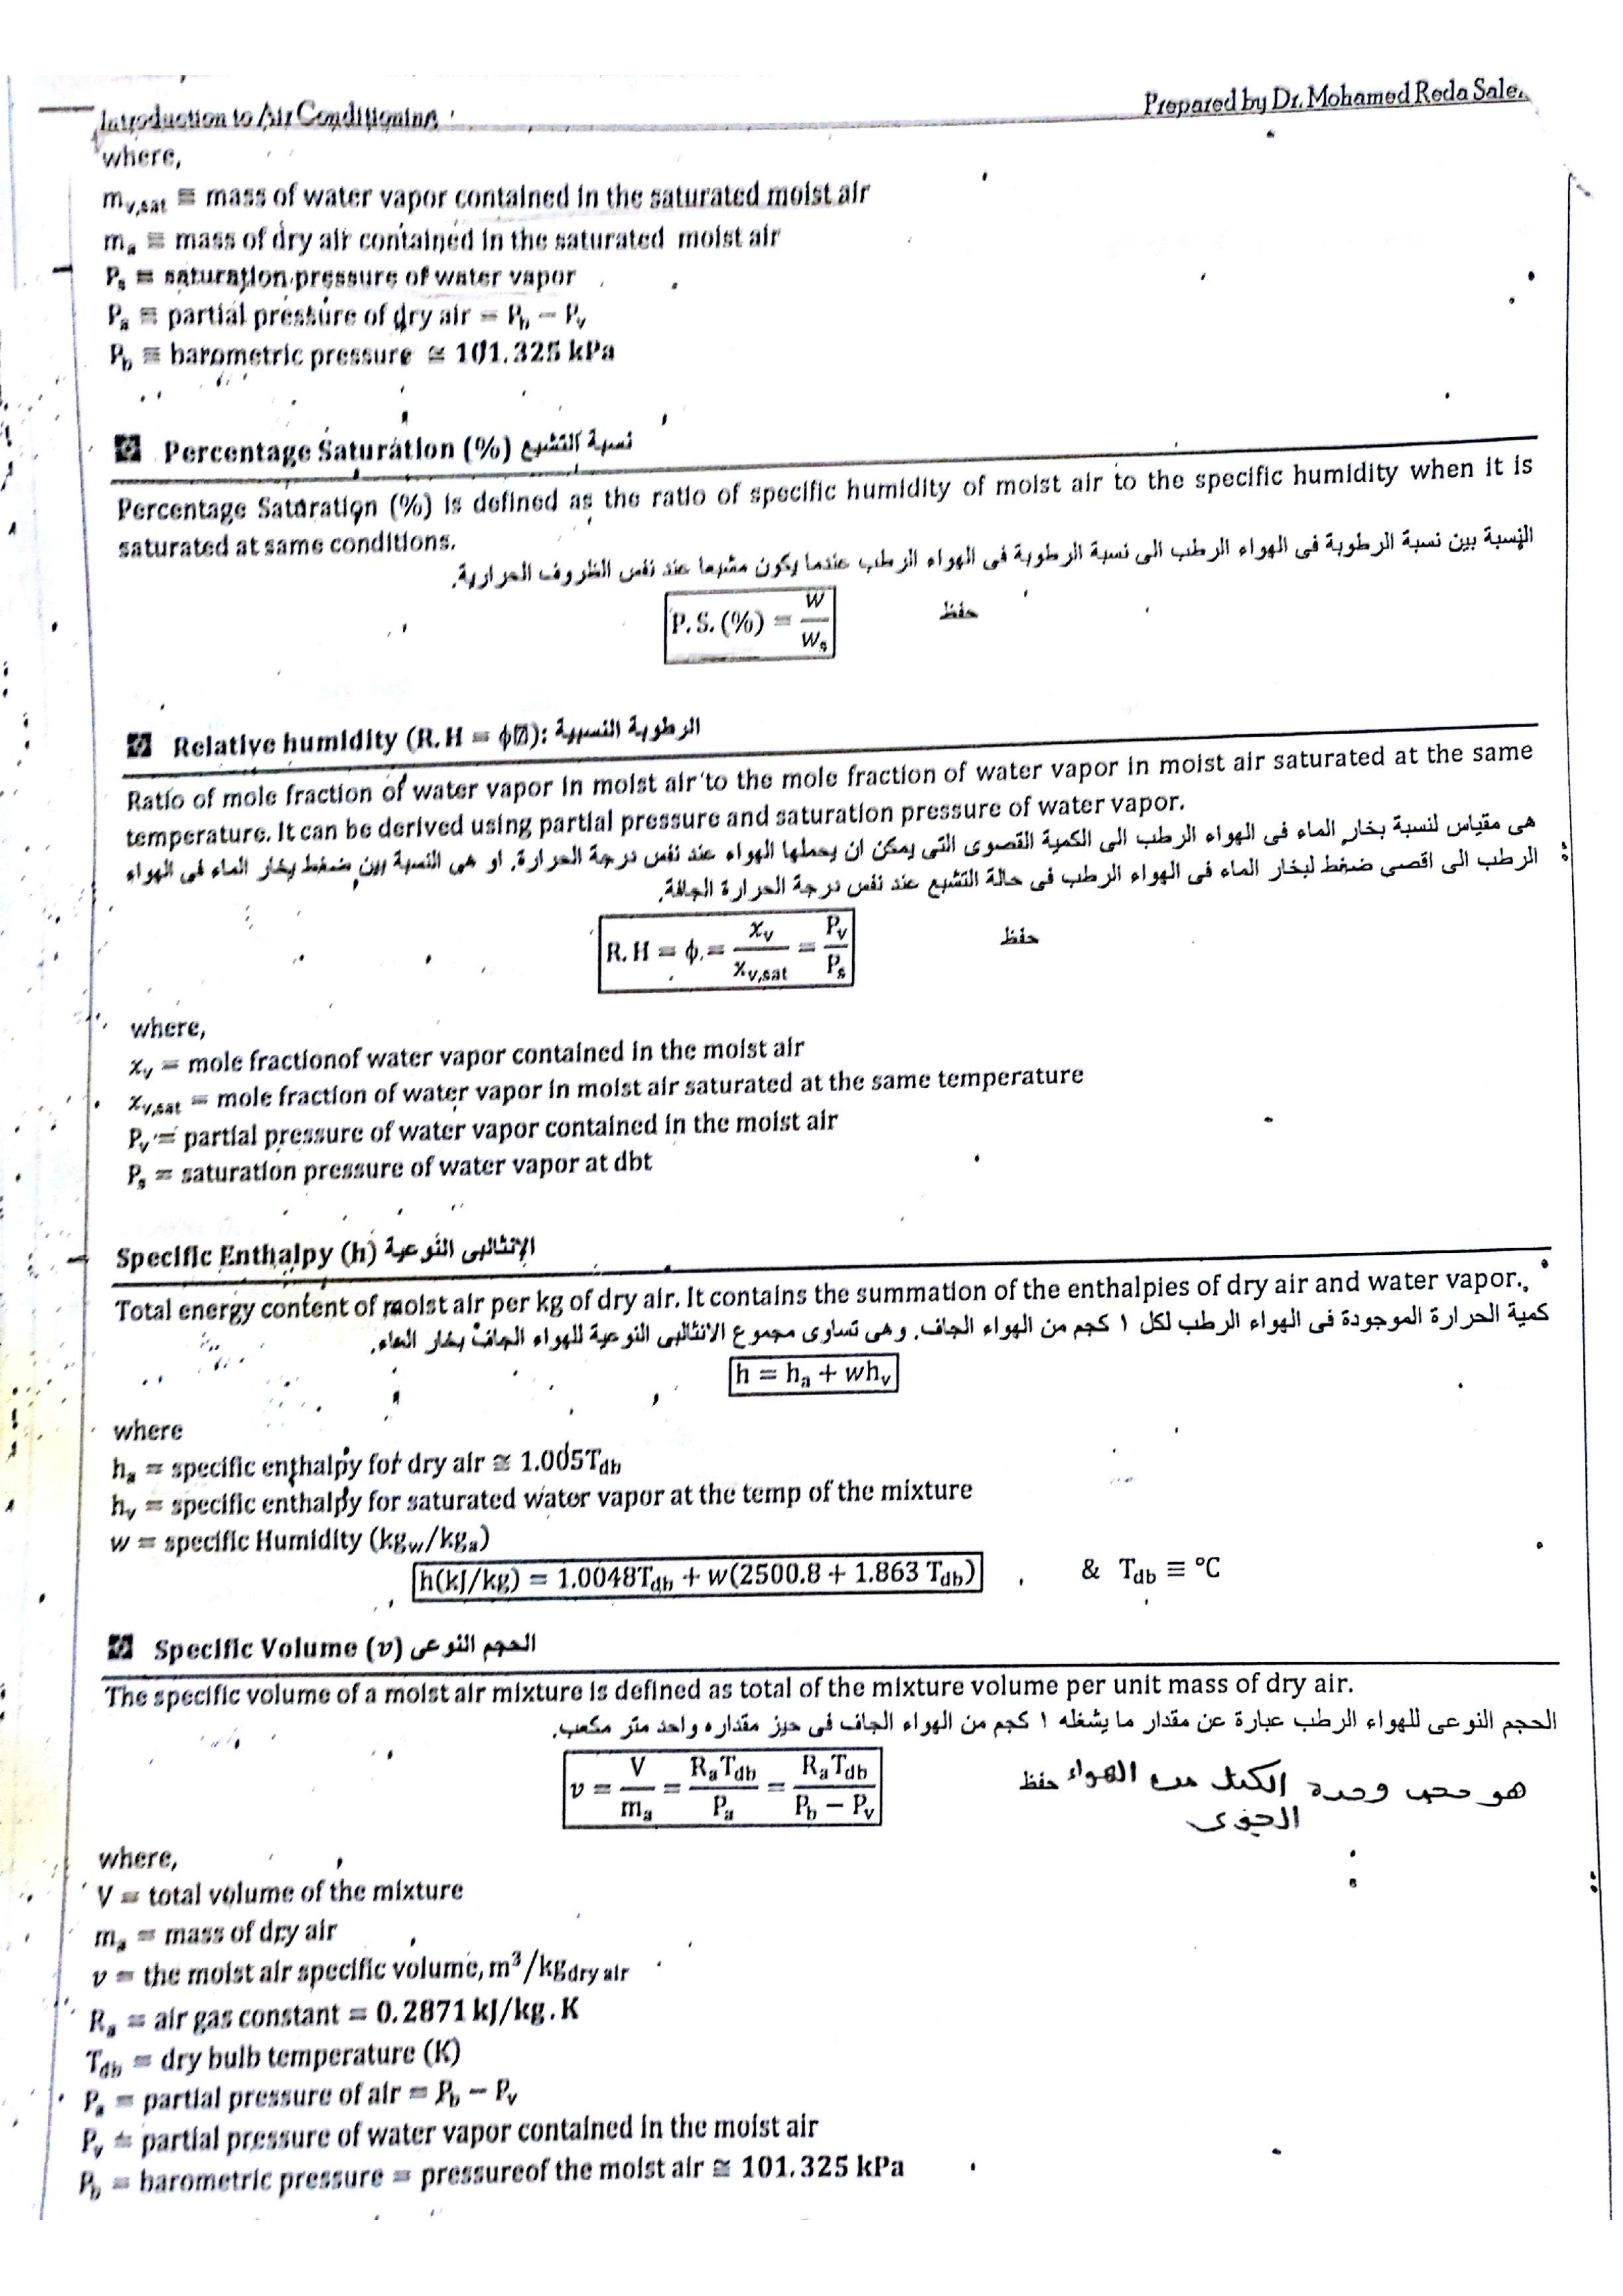 Introduction to Air Conditioning
Prepared by Dr. Mohamed Reda Sale
where,
m_v,sat ≡ mass of water vapor contained in the saturated moist air
m_a ≡ mass of dry air contained in the saturated moist air
P_s ≡ saturation pressure of water vapor
P_a ≡ partial pressure of dry air = P_b − P_v
P_b ≡ barometric pressure ≅ 101.325 kPa
Percentage Saturation (%) نسبة التشبع
Percentage Saturation (%) is defined as the ratio of specific humidity of moist air to the specific humidity when it is
saturated at same conditions.
النسبة بين نسبة الرطوبة فى الهواء الرطب الى نسبة الرطوبة فى الهواء الرطب عندما يكون مشبعا عند نفس الظروف الحرارية.
P.S.(%) = w / w_s حفظ
Relative humidity (R.H = ϕ): الرطوبة النسبية
Ratio of mole fraction of water vapor in moist air to the mole fraction of water vapor in moist air saturated at the same
temperature. It can be derived using partial pressure and saturation pressure of water vapor.
هى مقياس لنسبة بخار الماء فى الهواء الرطب الى الكمية القصوى التى يمكن ان يحملها الهواء عند نفس درجة الحرارة. او هى النسبة بين ضغط بخار الماء فى الهواء
الرطب الى اقصى ضغط لبخار الماء فى الهواء الرطب فى حالة التشبع عند نفس درجة الحرارة الجافة.
R.H = ϕ = x_v / x_v,sat = P_v / P_s حفظ
where,
x_v = mole fractionof water vapor contained in the moist air
x_v,sat = mole fraction of water vapor in moist air saturated at the same temperature
P_v = partial pressure of water vapor contained in the moist air
P_s = saturation pressure of water vapor at dbt
Specific Enthalpy (h) الإنثالبى النوعية
Total energy content of moist air per kg of dry air. It contains the summation of the enthalpies of dry air and water vapor.
كمية الحرارة الموجودة فى الهواء الرطب لكل ١ كجم من الهواء الجاف. وهى تساوى مجموع الانثالبى النوعية للهواء الجاف بخار الماء.
h = h_a + wh_v
where
h_a = specific enthalpy for dry air ≅ 1.005T_db
h_v = specific enthalpy for saturated water vapor at the temp of the mixture
w = specific Humidity (kg_w/kg_a)
h(kJ/kg) = 1.0048T_db + w(2500.8 + 1.863 T_db) , & T_db ≡ °C
Specific Volume (v) الحجم النوعى
The specific volume of a moist air mixture is defined as total of the mixture volume per unit mass of dry air.
الحجم النوعى للهواء الرطب عبارة عن مقدار ما يشغله ١ كجم من الهواء الجاف فى حيز مقداره واحد متر مكعب.
v = V / m_a = R_a T_db / P_a = R_a T_db / (P_b − P_v) حفظ
هو حجم وحدة الكتل من الهواء
الجوى
where,
V = total volume of the mixture
m_a = mass of dry air
v = the moist air specific volume, m³/kg_dry air
R_a = air gas constant = 0.2871 kJ/kg.K
T_db = dry bulb temperature (K)
P_a = partial pressure of air = P_b − P_v
P_v = partial pressure of water vapor contained in the moist air
P_b = barometric pressure = pressureof the moist air ≅ 101.325 kPa